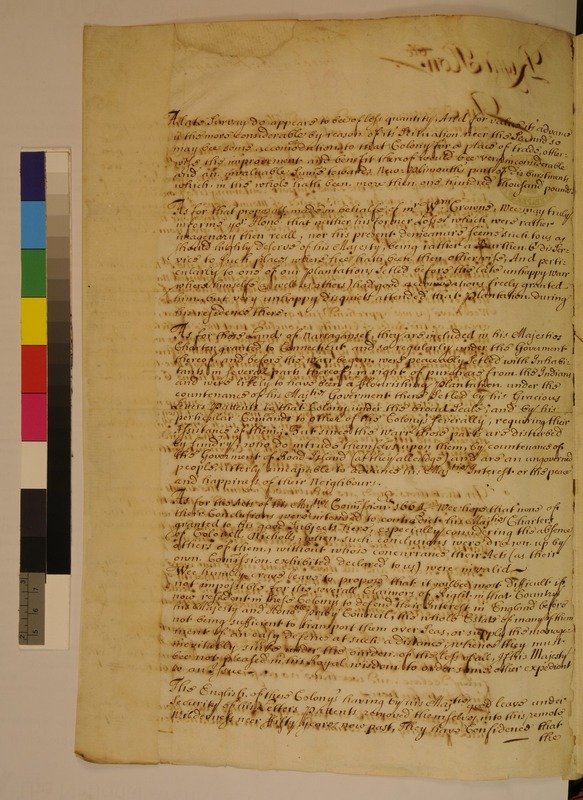 A late Survay do appeare to bee of less quantity. And for
is the more Considerable by reason of its Scituation neer the so
may bee some accomodations to that Colony for a place of trade, other-
wise the improvement and benefit thereof would bee very inconsiderable
and an invaluable Sume towards New-Plimouths past disbursments
which in the whole hath been more then one hundred thousand pounds
As for that proposall made in behalfe of mr Wm Crowne, Wee may truly
informe yor Honrs that neither his former losses which were rather
imaginary then reall, nor his present demeanure seeme such to us as
should highly deserve of his Majesty, being rather a burthen & disser-
vice to such places where hee hath been then otherwise; And perti-
cularly to one of our plantations Setled before the late unhappy warr
where himselfe as well as others had good accomodations freely granted
him, but very unhappy disquiets attended that plantation during
his residence there.
As for those Lands of Narraganset, they are included in his Majesties
Charter granted to Connecticut and so regularly under the Goverment
thereof and before the warr begun were peaceably setled with Inhabi-
tants in severall parts thereof, in right of purchase from the Indians
and were likely to have been a flourishing plantation under the
countenance of his Majties Goverment there setled by his Gracious
Letters Pattents to that Colony under the broad Seale; and by his
particular Comands to others of the Colonys severally, requiring their
Assistance of them; But since the warr those parts are disturbed
by sundry, who do intrude themselves upon them, by countenance of
the Goverment of Road Island (as they alleadge) and are an ungoverned
people, utterly uncapable to advance his Majties Interest or the peace
and happiness of their Neighbours.
As for the Acts of his Majties Comissionrs 1664. Wee hope that none of
there Conclusions were intended to contradict his Majties Charters
granted to his good subjects here, especially considering the absence
of Collonell Nicholls, when such conclusions were drawn up by
others of them, without whose concurrance their Acts (as their
own Comission exhibited declared to us) were invalid
Wee humbly crave leave to propose that it will bee most difficult if
not impossible for the severall Claimors of Right in that Country
now resident in these Colonys to defend their Interest in England before
his Majesty and Honoble Privy Council, the whole Estate of many of them
not being sufficient to transport them over Seas, or supply the
ment of an only defence at such a distance; whence they must
inevitably sinke under the burden of the loss of all, if his Majesty
bee not pleased in his Royal wisdom to order some other expedient
to an issue.
The English of these Colonys having by his Majties good leave under
Security of his Letters Pattents removed themselves into this remote
Wilderness neer fifty yeares now past, They have Confidence that
the